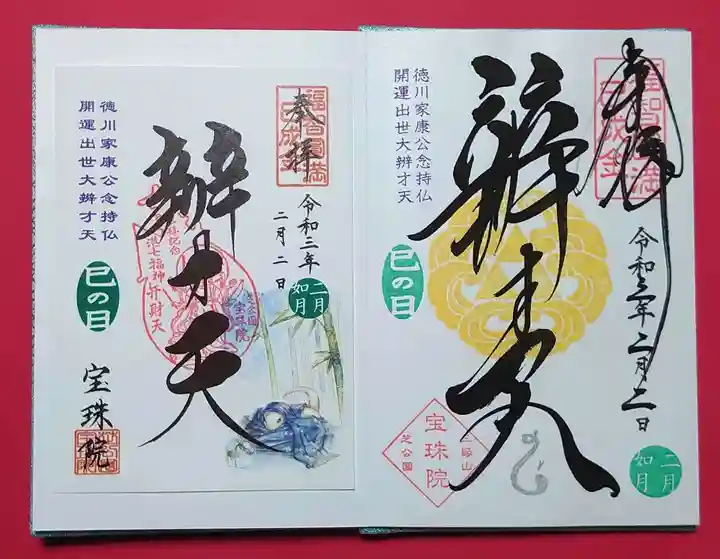 奉拝
福智円満
令和三年
二月二日
二月
如月
辨才天
徳川家康公念持仏
開運出世大辨才天
巳の日
港七福神弁財天
芝公園
宝珠院
宝珠院
奉拝
令和三年二月二日
二月
如月
辨才天
徳川家康公念持仏
開運出世大辨才天
巳の日
三縁山
宝珠院
芝公園